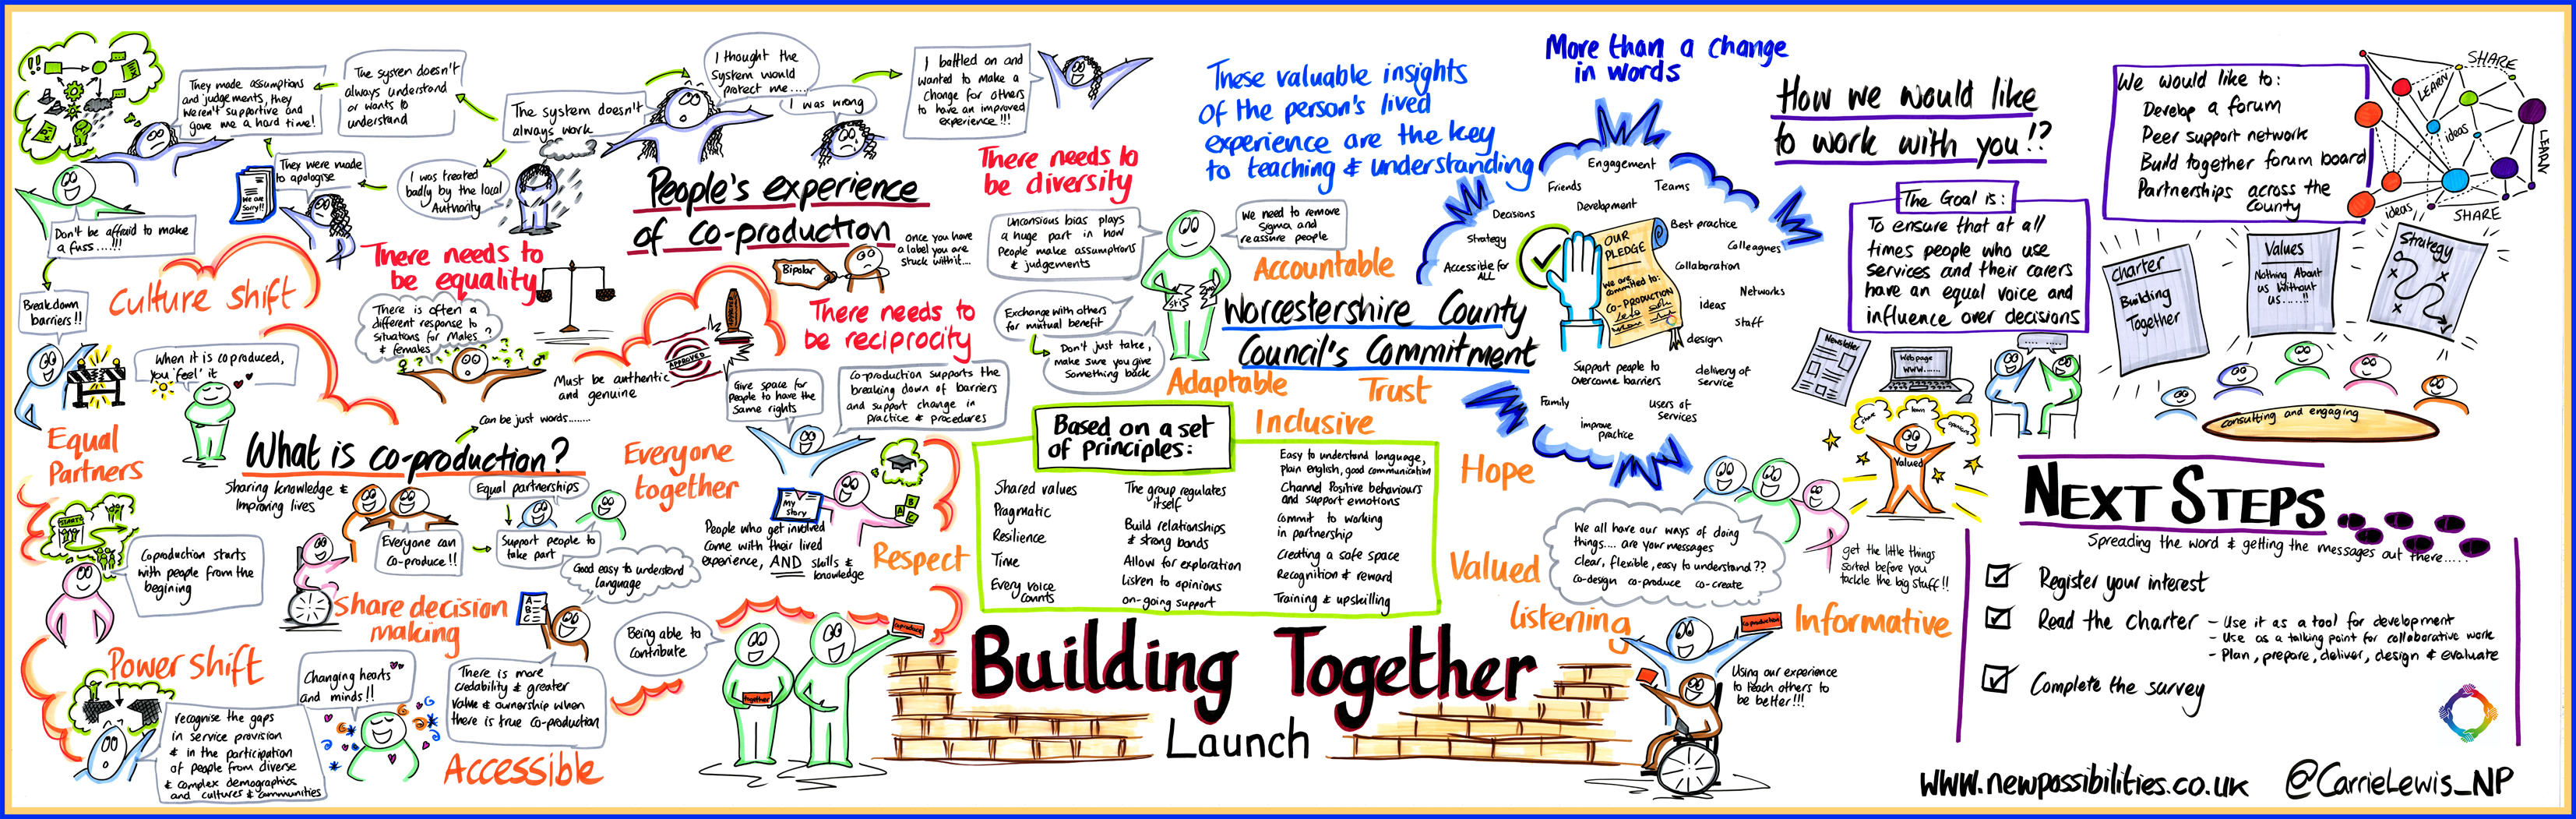 They made assumptions
and judgements, they
weren't supportive and
gave me a hard time!
The system doesn't
always understand
or wants to
understand
The system doesn't
always work
I thought the
system would
protect me....
I was wrong
I battled on and
wanted to make a
change for others
to have an improved
experience!!!
They were made
to apologise
We are
Sorry!!
I was treated
badly by the local
Authority
Don't be afraid to make
a fuss....!!!
Break down
barriers!!
Culture shift
There needs to
be equality
There is often a
different response to
situations for males
& females
People's experience
of co-production
Once you have
a label you are
stuck with it....
Bipolar
There needs to
be diversity
There needs to
be reciprocity
Must be authentic
and genuine
APPROVED
When it is coproduced,
you 'feel' it
Equal
Partners
What is co-production?
Can be just words........
Sharing knowledge &
Improving lives
Equal partnerships
Everyone can
co-produce!!
Support people to
take part
Good easy to understand
language
START
Coproduction starts
with people from the
begining
Share decision
making
A-
B-
C-
Power shift
Changing hearts
and minds!!
recognise the gaps
in service provision
& in the participation
of people from diverse
& complex demographics
and cultures & communities
There is more
credability & greater
value & ownership when
there is true co-production
Accessible
Everyone
together
Give space for
People to have the
Same rights
Co-production supports the
breaking down of barriers
and support change in
practice & procedures
My
story
A B C
People who get involved
come with their lived
experience, AND skills &
knowledge
Respect
Being able to
contribute
together
coproduce
These valuable insights
of the person's lived
experience are the key
to teaching & understanding
Unconsious bias plays
a huge part in how
People make assumptions
& judgements
We need to remove
Sigma and
reassure people
Exchange with others
for mutual benefit
Don't just take,
make sure you give
Something back
Accountable
Worcestershire County
Council's Commitment
Adaptable
Trust
Inclusive
Based on a set
of principles:
Shared values
Pragmatic
Resilience
Time
Every voice
counts
The group regulates
itself
Build relationships
& strong bonds
Allow for exploration
Listen to opinions
on-going support
Easy to understand language,
plain english, good communication
Channel Positive behaviours
and support emotions
Commit to working
in partnership
Creating a safe space
Recognition & reward
Training & upskilling
Building Together
Launch
More than a change
in words
Engagement
Friends
Teams
Development
Decisions
Best practice
Strategy
Colleagues
Accessible for
ALL
Collaboration
OUR
PLEDGE
We are
committed to:
CO-PRODUCTION
Networks
ideas
Staff
design
Support people to
overcome barriers
delivery of
service
Family
users of
services
improve
practice
Hope
Valued
Listening
Informative
We all have our ways of doing
things.... are your messages
clear, flexible, easy to understand??
co-design co-produce co-create
co-production
Using our experience
to teach others to
be better!!!
get the little things
sorted before you
tackle the big stuff!!
How we would like
to work with you!?
The Goal is:
To ensure that at all
times people who use
services and their carers
have an equal voice and
influence over decisions
Newsletter
Web page
www......
Valued
We would like to:
Develop a forum
Peer support network
Build together forum board
Partnerships across the
county
SHARE
LEARN
ideas
LEARN
ideas
SHARE
Charter
Building
Together
Values
Nothing About
us Without
us.....!!
Strategy
consulting and engaging
NEXT STEPS
Spreading the word & getting the messages out there.....
Register your interest
Read the charter - Use it as a tool for development
- Use as a talking point for collaborative work
- Plan, prepare, deliver, design & evaluate
Complete the survey
www.newpossibilities.co.uk @CarrieLewis_NP